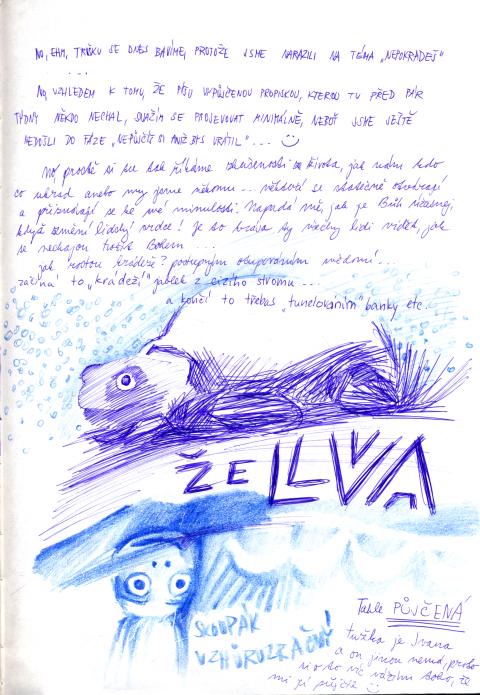 NO, EHM, TROŠKU SE DNES BAVÍME, PROTOŽE JSME NARAZILI NA TÉMA „NEPOKRADEŠ"
...
NO, VZHLEDEM K TOMU, ŽE PÍŠU VYPŮJČENOU PROPISKOU, KTEROU TU PŘED PÁR
TÝDNY NĚKDO NECHAL, SNAŽÍM SE PROJEVOVAT MINIMÁLNĚ, NEBOŤ JSME JEŠTĚ
NEDOŠLI DO FÁZE „NEPŮJČÍŠ SI ANIŽ BYS VRÁTIL"...
No, prostě si tu tak říkáme zkušenosti ze života, jak nám kdo
co ukrad anebo my jsme někomu... někteří se statečně
a přiznávají se ke své minulosti. Napadá mě, jak je Bůh úžasnej,
když změní lidský srdce! Je to krása ty všechny lidi vidět, jak
se nechajou Bohem...
jak rostou krádeže? postupným otupováním svědomí...
začíná to „krádeží" jablek z cizího stromu...
a končí to třebas „tunelováním" banky etc...
ŽELLVA
SKOUPÁK
VZHŮRUZRAČNÝ
Tahle PŮJČENÁ
tužka je Ivana
a on jinou nemá, proto
si o to víc vážím toho, že
mi jí půjčil